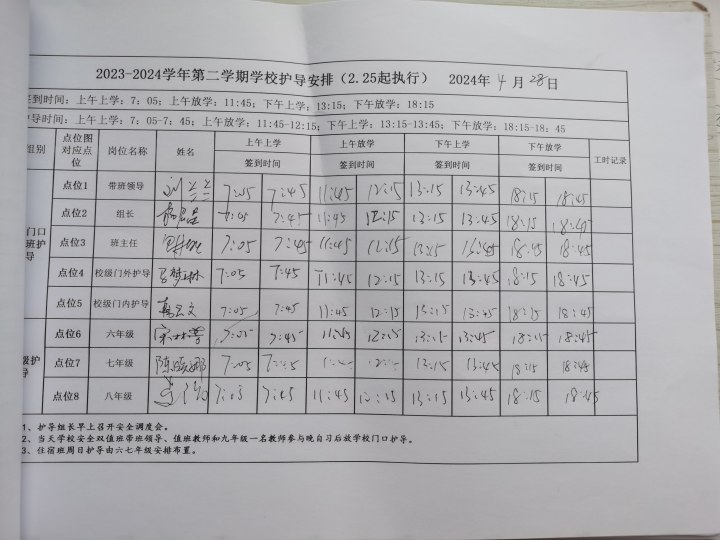 2023-2024学年第二学期学校护导安排（2.25起执行） 2024年 4 月 28 日
到时间：上午上学：7：05；上午放学：11:45；下午上学：13:15；下午放学：18:15
导时间：上午上学：7：05-7；45；上午放学：11:45-12:15；下午上学：13:15-13:45；下午放学：18:15-18：45
组别 点位图对应点位 岗位名称 姓名 上午上学 上午放学 下午上学 下午放学 工时记录
签到时间 签到时间 签到时间 签到时间
门口班护导
点位1 带班领导 7:05 7:45 11:45 12:15 13:15 13:45 18:15 18:45
点位2 组长 7:05 7:45 11:45 12:15 13:15 13:45 18:15
点位3 班主任 7:05 7:45 11:45 12:15 13:15 13:45 18:45
点位4 校级门外护导 7:05 7:45 11:45 12:15 13:15 13:45 18:15 18:45
点位5 校级门内护导 7:05 7:45 11:45 12:15 13:15 13:45 18:15 18:45
级护导
点位6 六年级 7:05 7:45 11:45 12:15 13:15 13:45 18:15 18:45
点位7 七年级 7:05 13:15 13:45 18:15 18:45
点位8 八年级 7:05 7:45 11:45 12:15 13:15 13:45 18:15 18:45
1、护导组长早上召开安全调度会。
2、当天学校安全双值班带班领导、值班教师和九年级一名教师参与晚自习后放学校门口护导。
3、住宿班周日护导由六七年级安排布置。